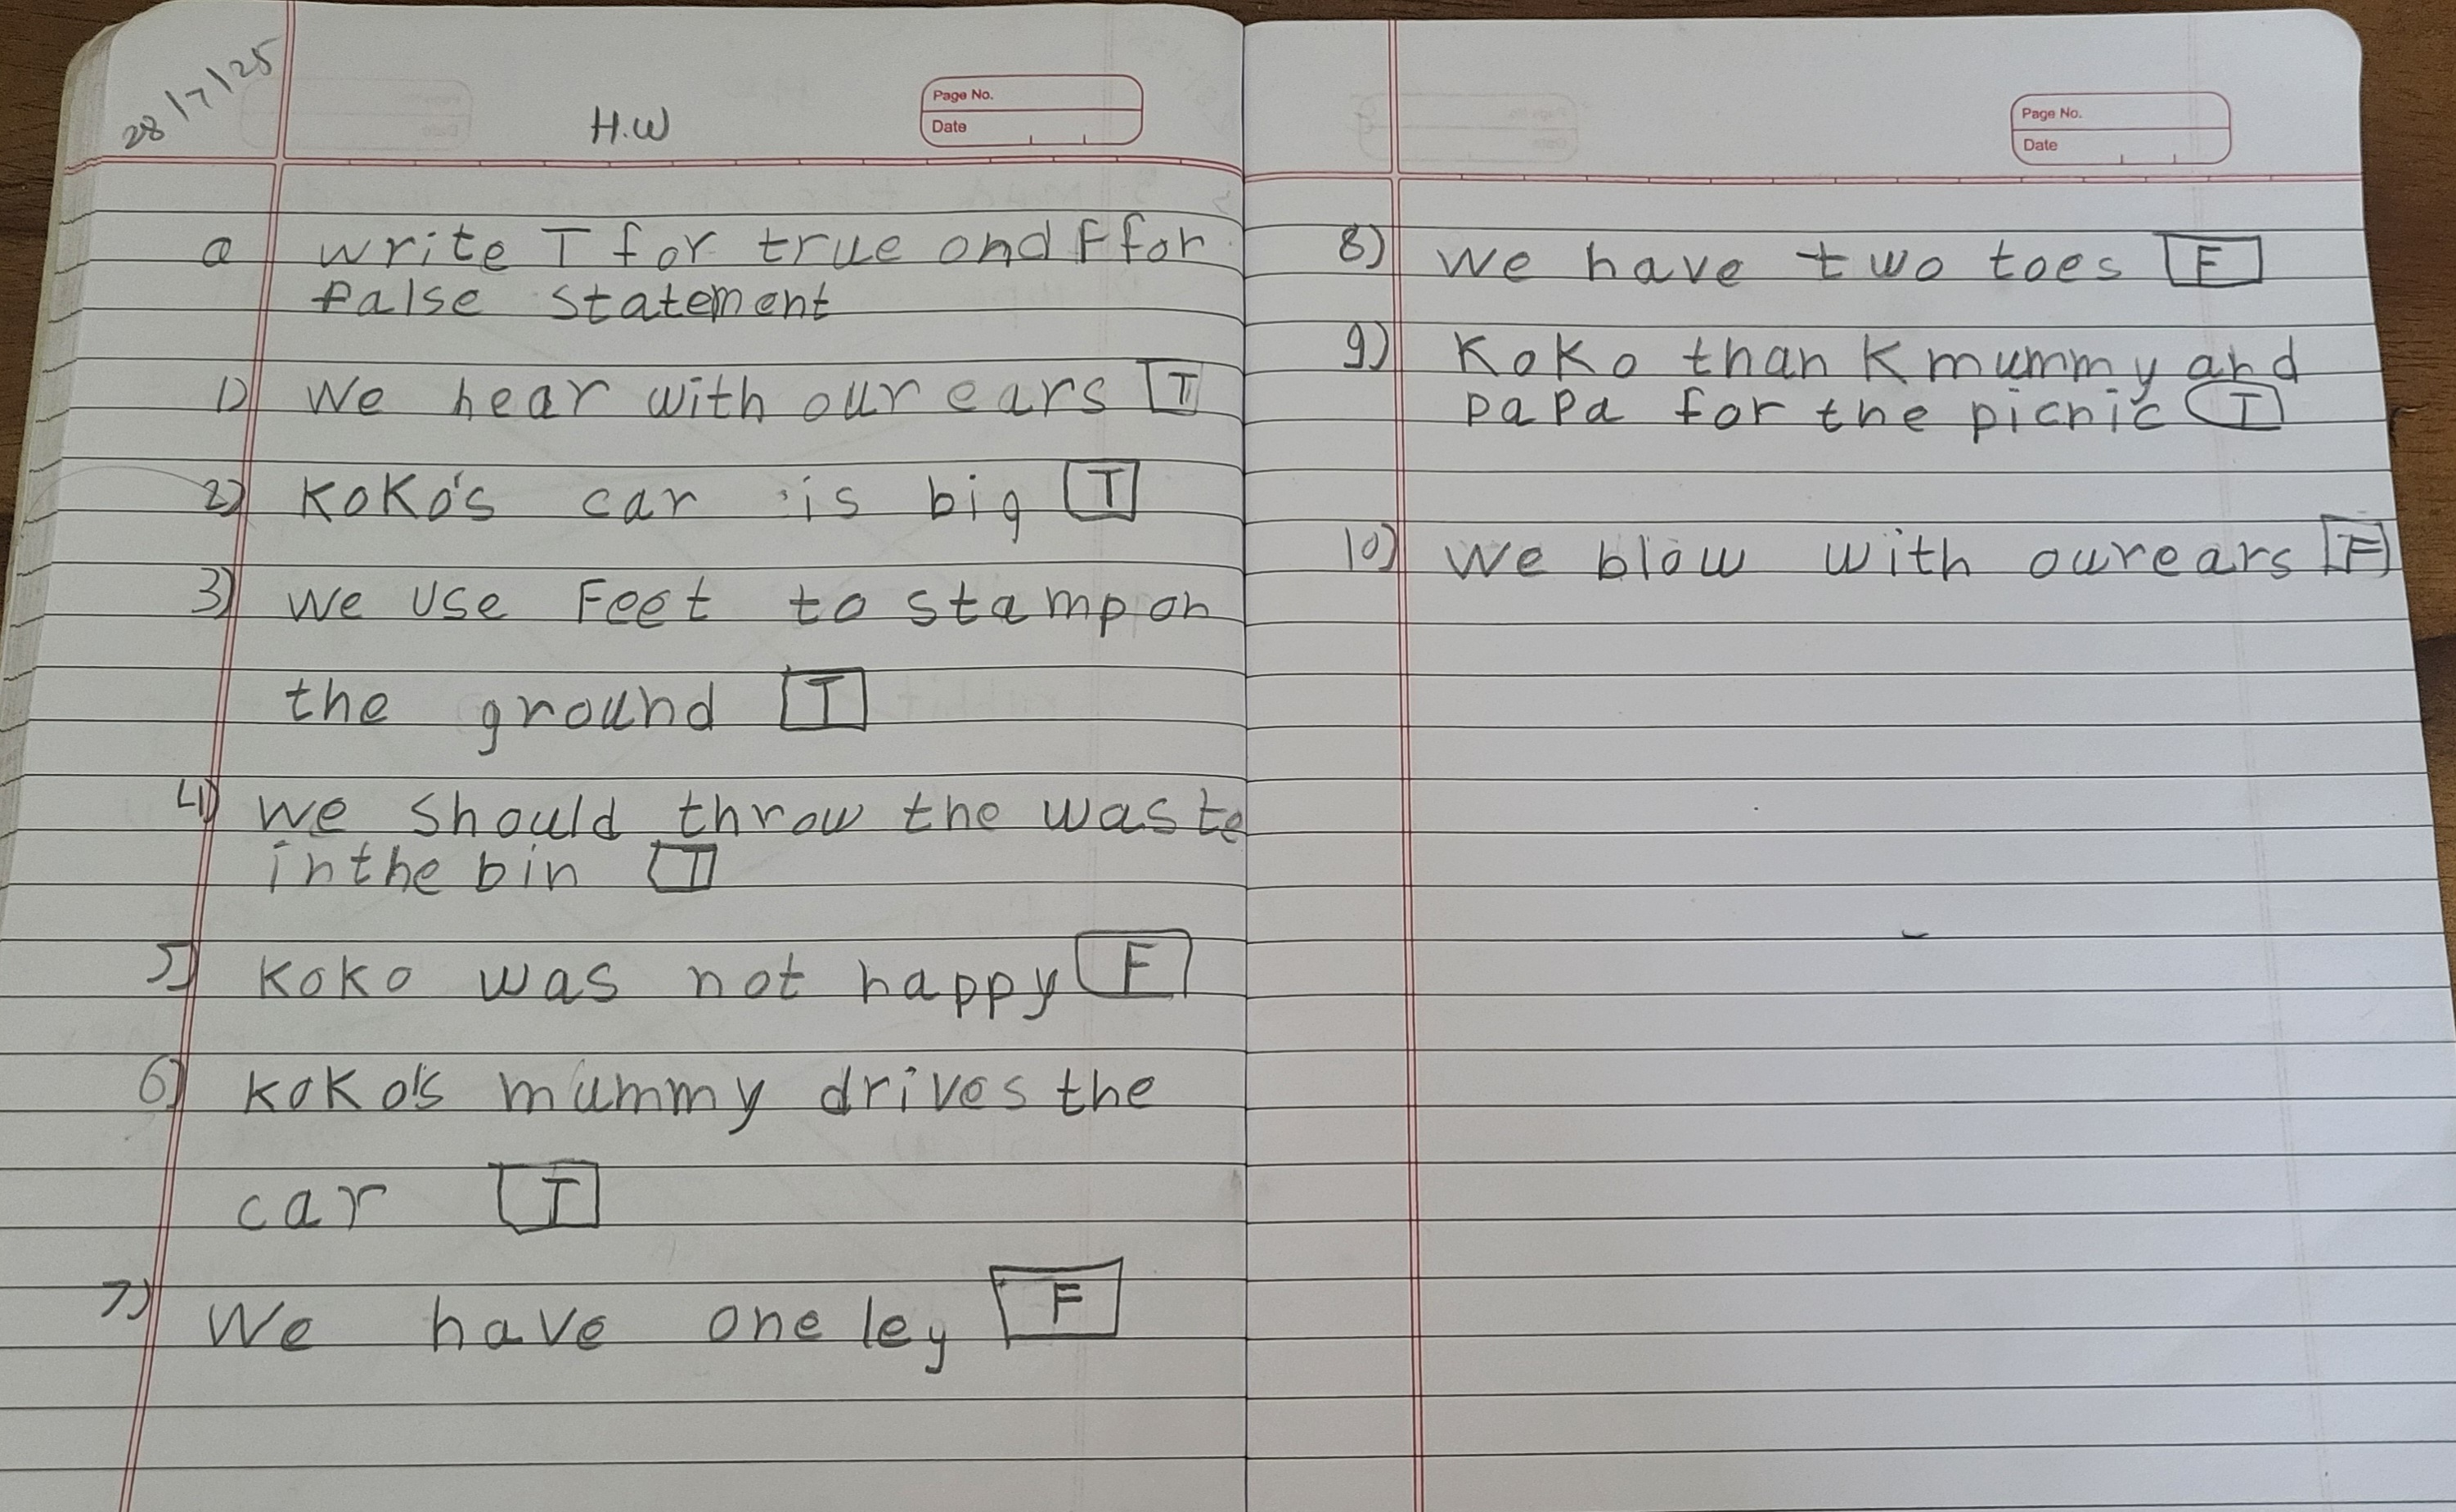 28/7/25
H.W
Page No.
Date
a write T for true and F for
false statement
1) We hear with our ears T
2) KoKo's car is big T
3) we use Feet to stamp on
the ground T
4) we should throw the waste
in the bin T
5) KoKo was not happy F
6) KoKo's mummy drives the
car T
7) We have one ley F
Page No.
Date
8) we have two toes F
9) KoKo than K mummy and
papa for the picnic T
10) We blow with our ears F